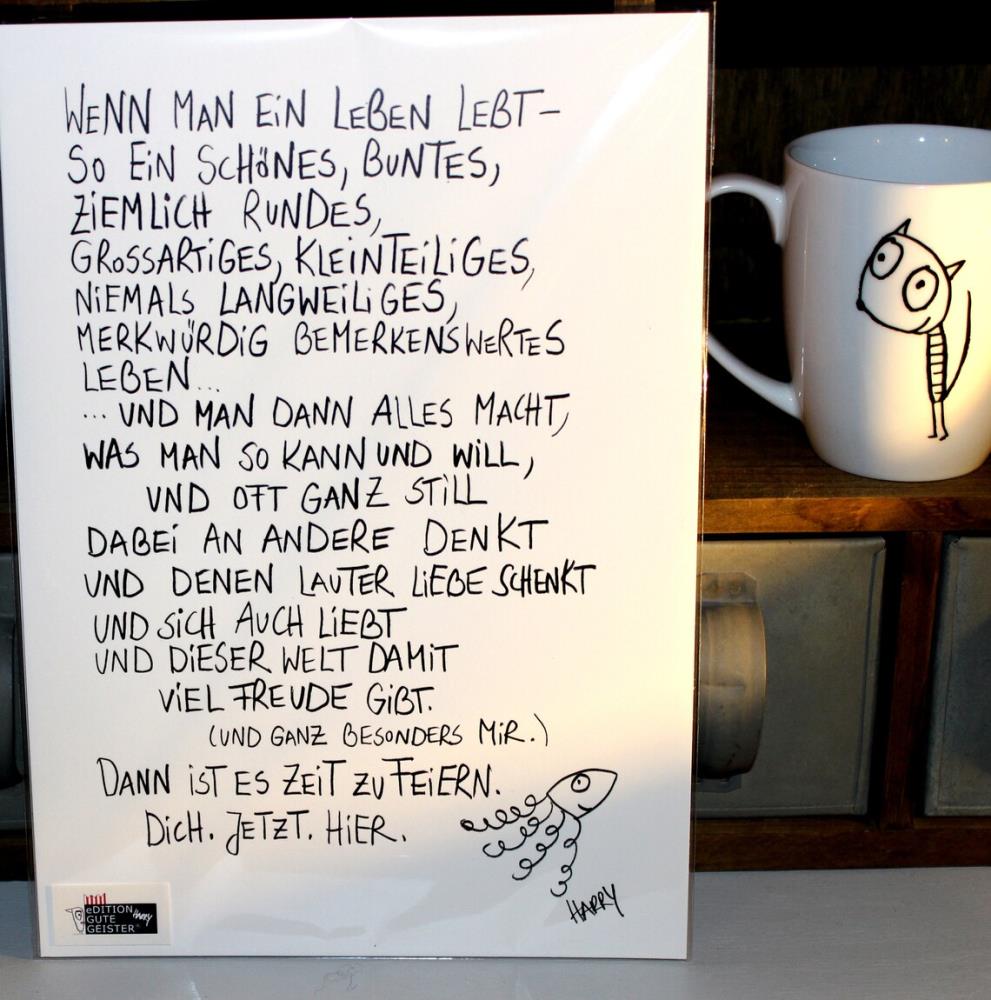 WENN MAN EIN LEBEN LEBT –
SO EIN SCHÖNES, BUNTES,
ZIEMLICH RUNDES,
GROSSARTIGES, KLEINTEILIGES,
NIEMALS LANGWEILIGES,
MERKWÜRDIG BEMERKENSWERTES
LEBEN...
...UND MAN DANN ALLES MACHT,
WAS MAN SO KANN UND WILL,
UND OFT GANZ STILL
DABEI AN ANDERE DENKT
UND DENEN LAUTER LIEBE SCHENKT
UND SICH AUCH LIEBT
UND DIESER WELT DAMIT
VIEL FREUDE GIBT.
(UND GANZ BESONDERS MIR.)
DANN IST ES ZEIT ZU FEIERN.
DICH. JETZT. HIER.
HARRY
eDITION
GUTE
GEISTER